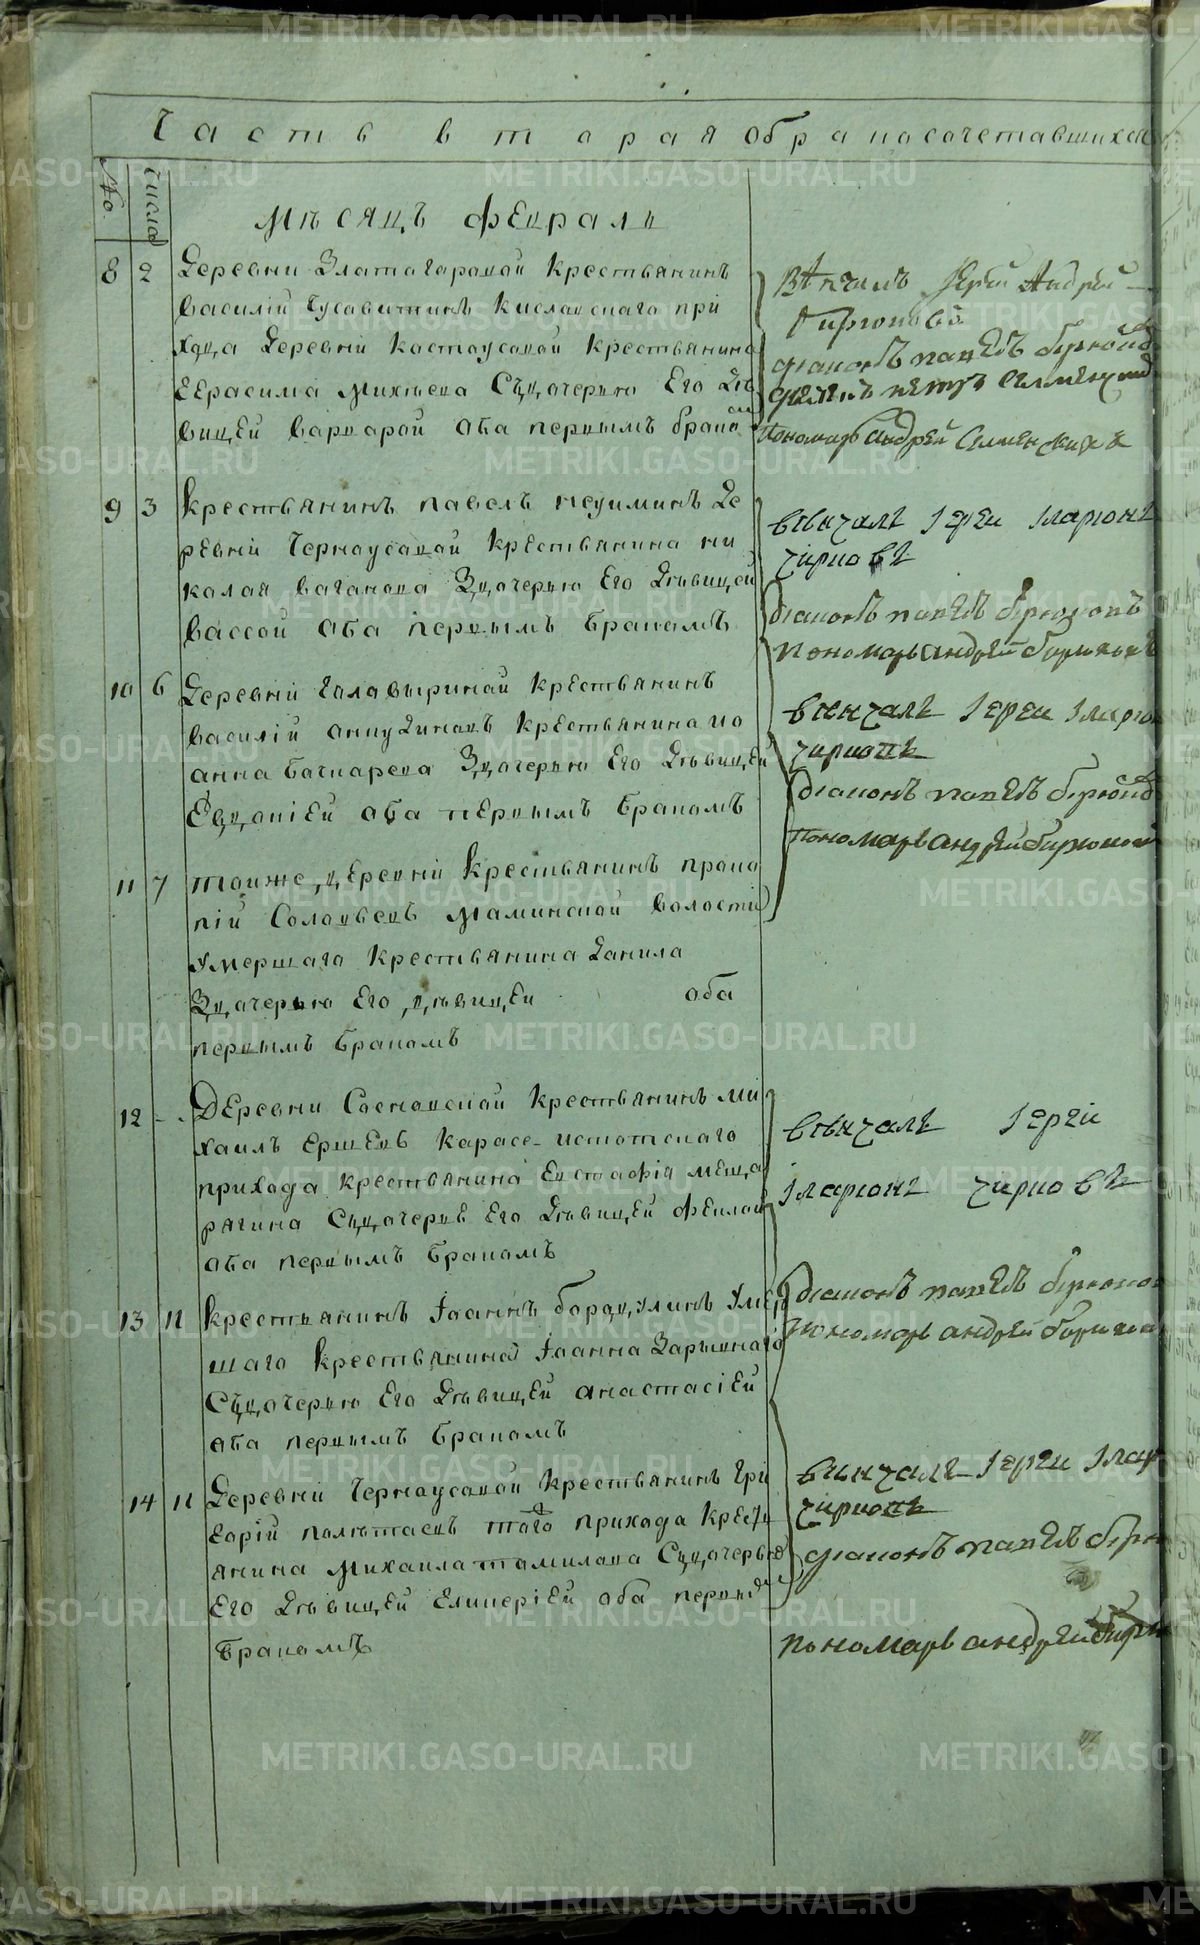 Часть вторая обракосочетавшихся
№
число
Мѣсяцъ февраль
8 2 Деревни Златогоровой крестьянинъ
василій кисловскаго при
хода деревни костоусовой крестьянина
Герасима михѣева Съдочерью Его дѣ
вицей варварой оба первымъ бракомъ
Вѣнчалъ Іерей Андрей
діаконъ павелъ бирюковъ
пономарь андрей
9 3 крестьянинъ павелъ неуиминъ де
ревни Черноусовой крестьянина ни
колая ваганова Здочерью Его дѣвицей
вассой оба первымъ бракомъ
вѣнчалъ Іереи Іларионъ
чирковъ
діаконъ павелъ бирюковъ
пономарь андрей бирюковъ
10 6 Деревни Головыриной крестьянинъ
василій крестьянина ио
анна Здочерью Его дѣвицей
Евдокіей оба первымъ бракомъ
вѣнчалъ Іереи Іларіон
чирковъ
діаконъ павелъ бирюков
пономарь андрей бирюков
11 7 тойже деревни крестьянинъ проко
пій Соловьевъ маминской волости
умершаго крестьянина данила
Здочерью Его дѣвицей оба
первымъ бракомъ
12 - Деревни Сосновской крестьянинъ ми
хаилъ ершевъ карасе-истотскаго
прихода крестьянина Евстафія меща
рягина Сдочерью Его дѣвицей феклой
оба первымъ бракомъ
вѣнчалъ Іереи
Іларионъ чирковъ
13 11 крестьянинъ Іоаннъ бордулинъ умер
шаго крестьянина Іоанна Зарывнаго
Съдочерью Его дѣвицей анастасіей
оба первымъ бракомъ
діаконъ павелъ бирюков
пономарь андрей бирюков
14 11 Деревни Черноусовой крестьянинъ гри
горій полѣтаевъ того прихода крест
янина михаила томилова Сдочерью
Его дѣвицей Гликеріей оба первым
бракомъ
вѣнчалъ Іереи Ілар
чирковъ
діаконъ павелъ бирю
пономарь андрей бирю
METRIKI.GASO-URAL.RU